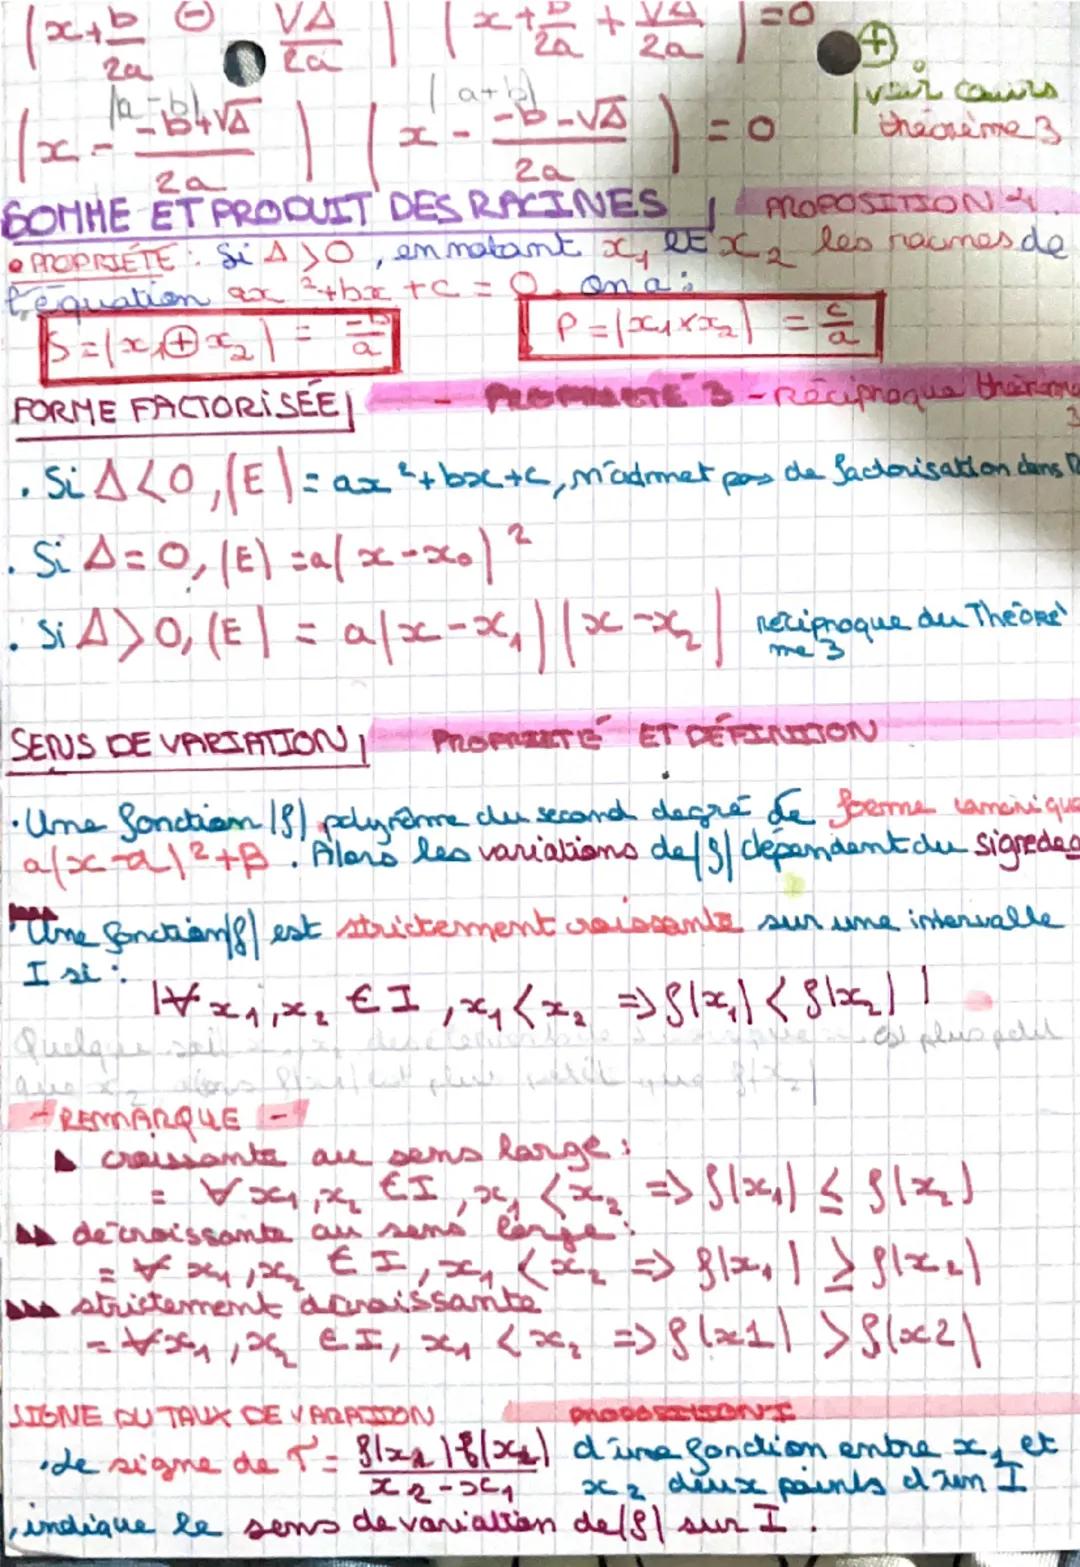 (x+b/2a ⊖ √Δ/2a) (x+b/2a + √Δ/2a)=0 ⊕
voir cours
(a-b) (a+b)
(x - -b+√Δ/2a) (x - -b-√Δ/2a) = 0 théorème 3
SOMME ET PRODUIT DES RACINES PROPOSITION 4.
• PROPRIÉTÉ : Si Δ>0, en notant x₁ et x₂ les racines de
l'équation ax²+bx+c = 0, on a :
S=(x₁⊕x₂) = -b/a P=(x₁×x₂) = c/a
FORME FACTORISÉE - PROPRIÉTÉ 3 - Réciproque théorème 3
. Si Δ<0, (E)= ax²+bx+c, n'admet pas de factorisation dans R
. Si Δ=0, (E) =a(x-x₀)²
. Si Δ>0, (E) = a(x-x₁)(x-x₂) réciproque du Théorè
me 3
SENS DE VARIATION PROPRIÉTÉ ET DÉFINITION
• Une fonction (f) polynôme du second degré de forme canonique
a(x-α)²+β. Alors les variations de (f) dépendent du signe de a
Une fonction (f) est strictement croissante sur une intervalle
I si :
(∀ x₁, x₂ ∈ I, x₁ < x₂ => f(x₁) < f(x₂))
Quelque soit x₁, x₂ des est plus petit
que x₂ alors f(x₁) est plus petit que f(x₂)
- REMARQUE -
croissante au sens large :
= ∀ x₁, x₂ ∈ I, x₁ < x₂ => f(x₁) ≤ f(x₂)
décroissante au sens large :
= ∀ x₁, x₂ ∈ I, x₁ < x₂ => f(x₁) ≥ f(x₂)
strictement décroissante
= ∀x₁, x₂ ∈ I, x₁ < x₂ => f(x1) > f(x2)
SIGNE DU TAUX DE VARIATION PROPOSITION 1
• Le signe de τ = f(x₂) f(x₁)/x₂-x₁ d'une fonction entre x₁ et
x₂ deux points d'un I
, indique le sens de variation de (f) sur I.